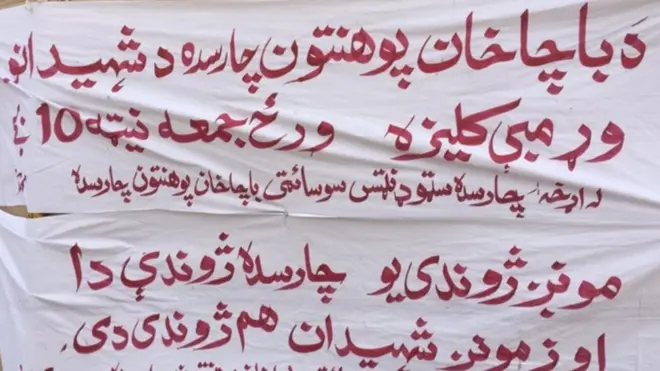 د باچاخان پوهنتون چارسده د شهیدانو
وړمبې کلیزه ورځ جمعه نېټه 10 بجې
د اړخه: چارسده سټوډنټس سوسائټي باچاخان پوهنتون چارسده
مونږ ژوندي یو چارسده ژوندې دا
او زمونږ شهیدان هم ژوندي دي.